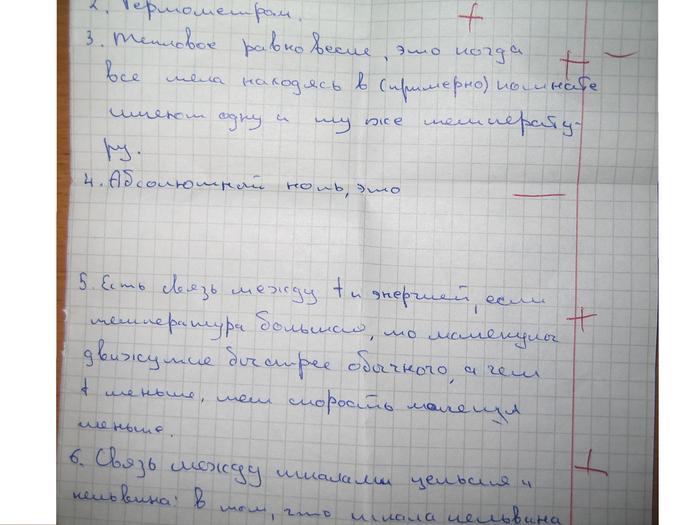 2. Термометром.
3. Тепловое равновесие, это когда
все тела находясь в (примерно) комнате
имеют одну и ту же температу-
ру.
4. Абсолютный ноль, это
5. Есть связь между t и энергией, если
температура большая, то молекулы
движутся быстрее обычного, а чем
t меньше, тем скорость молекул
меньше.
6. Связь между шкалами цельсия и
кельвина: в том, что шкала кельвина